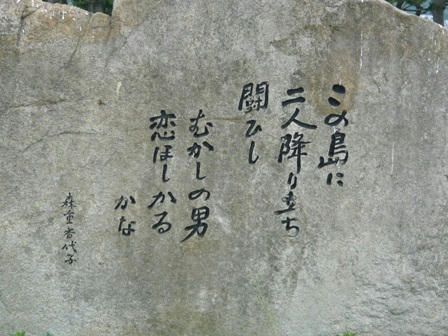 この島に
二人降り立ち
闘ひし
むかしの男
恋ほしかる
かな
森重香代子